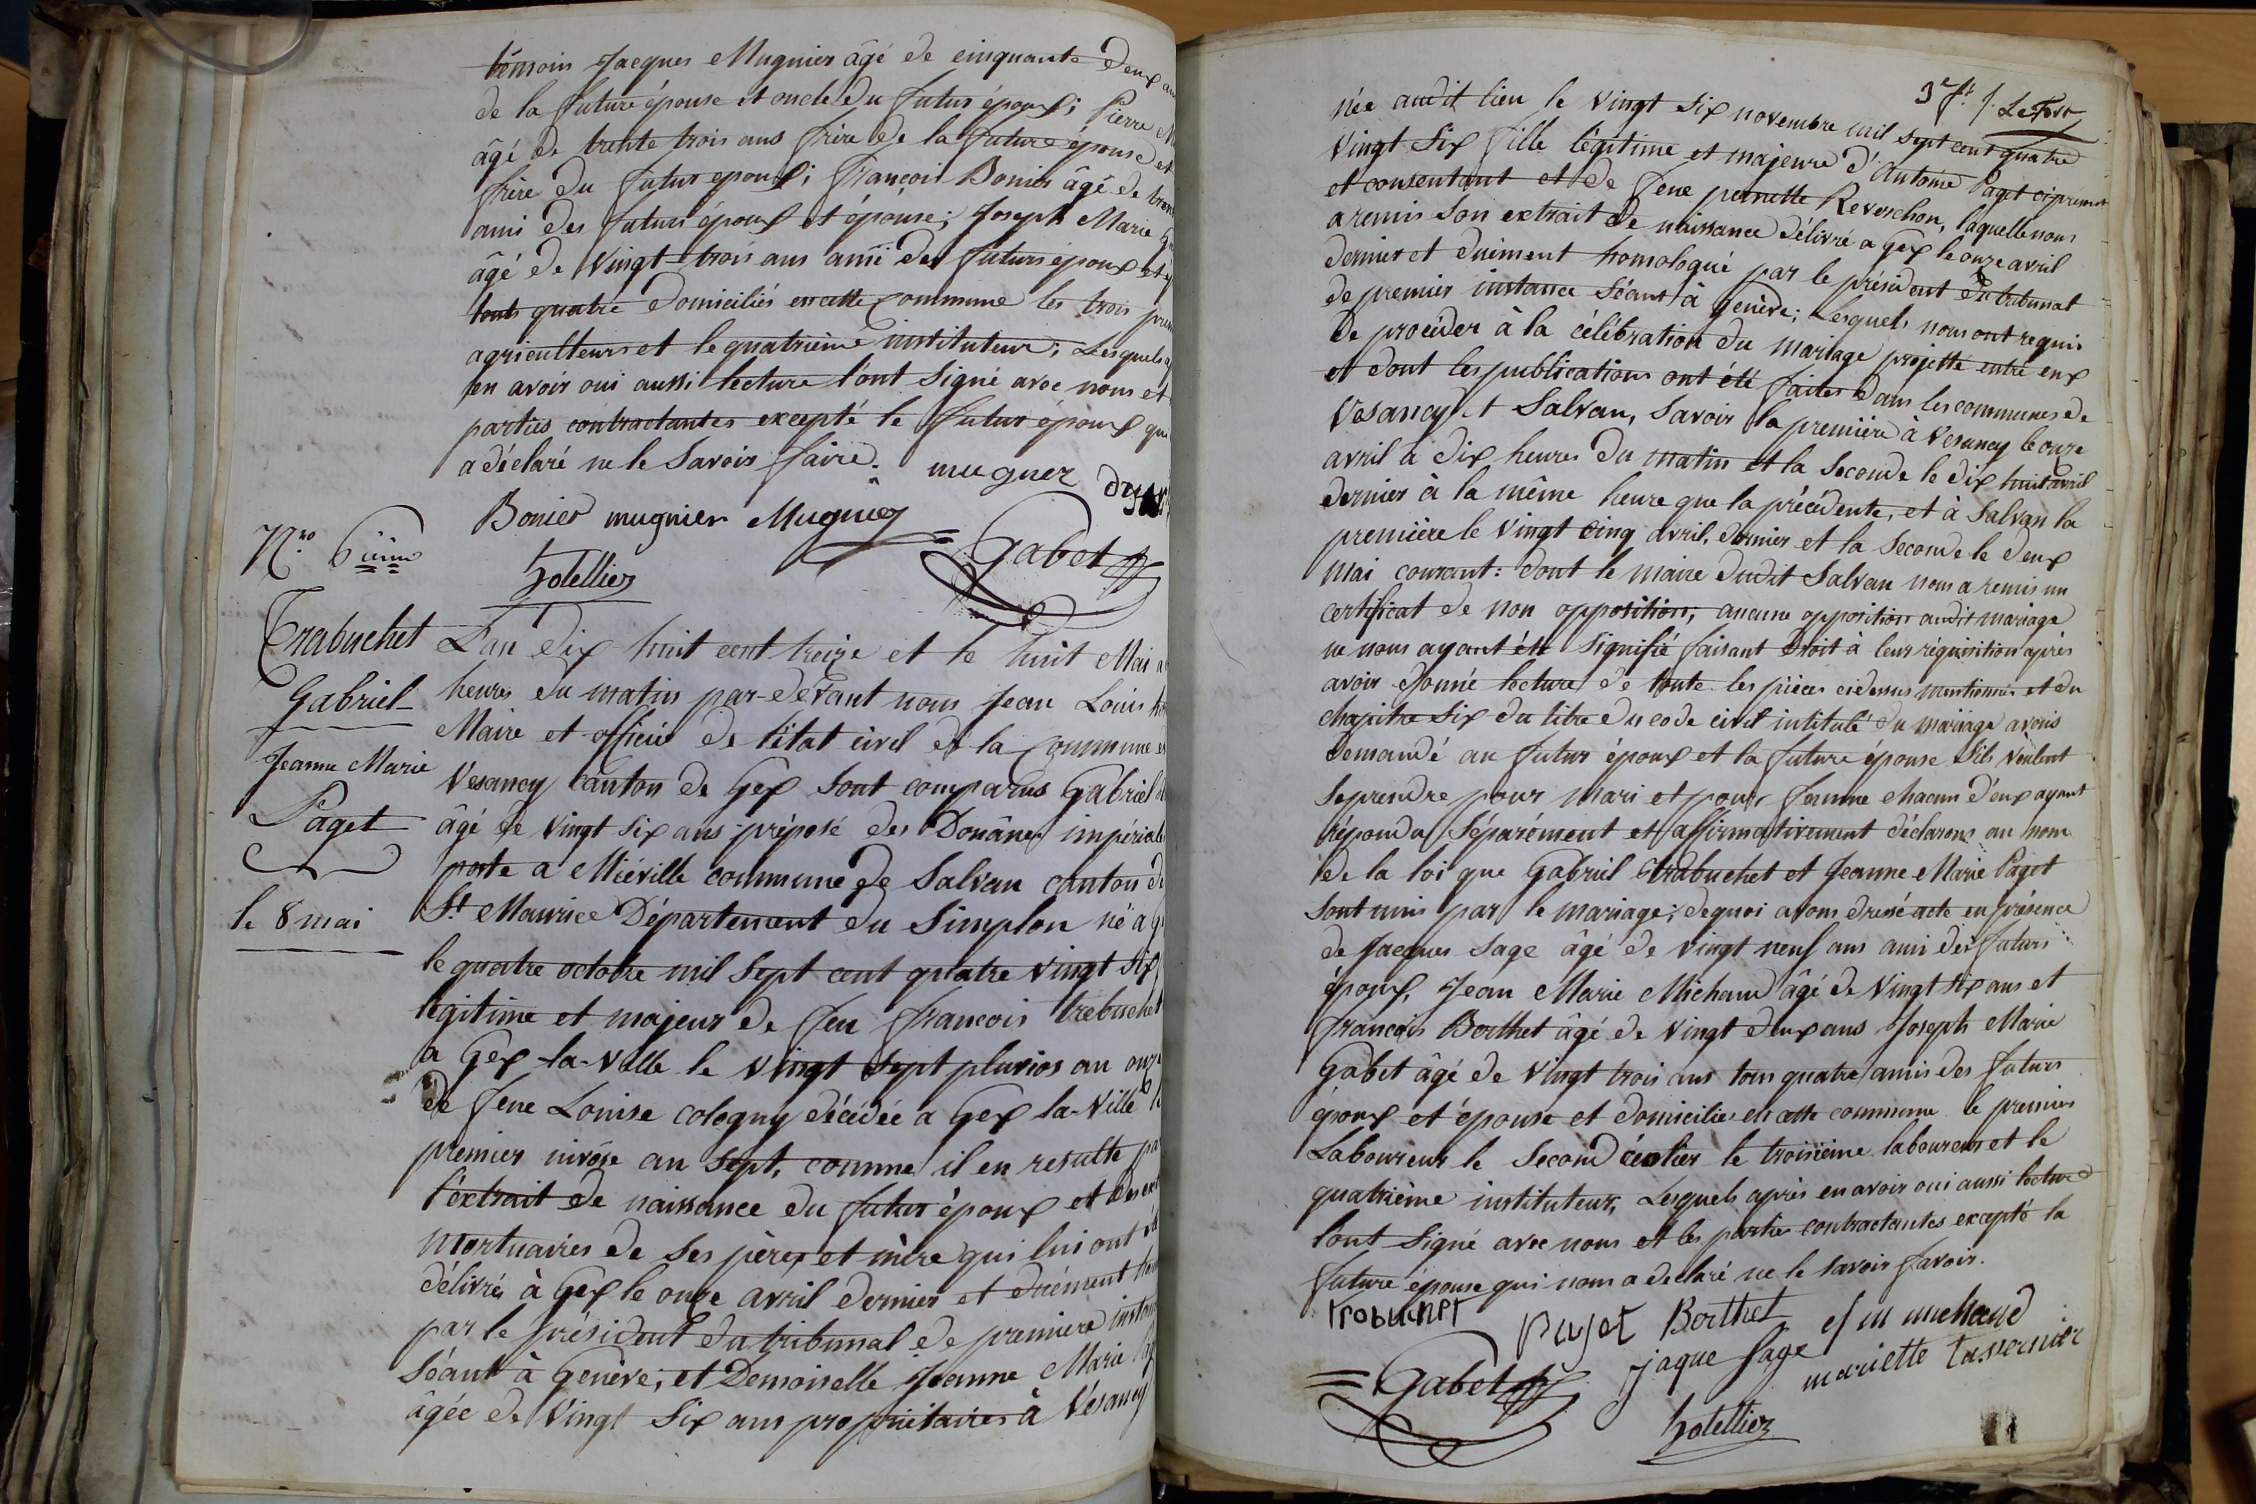 témoin Jacques Mugnier âgé de cinquante deux
de la future épouse et oncle du futur époux; Pierre
âgé de trente trois ans frère de la future épouse et
frère du futur époux; François Bonier âgé de
ami des futurs époux et épouse; Joseph Marie
âgé de vingt trois ans ami des futurs époux et
tous quatre domiciliés en cette commune les trois
agriculteurs et le quatrième instituteur; Lesquels
en avoir oui aussi lecture l'ont signé avec nous et
parties contractantes excepté le futur époux qui
a déclaré ne le savoir faire.
mugner
Bonier mugnier Mugnier
=Gabet
hotellier
N.ro 6ième
Trabuchet
Gabriel
Jeanne Marie
Paget
le 8 mai
L'an dix huit cent treize et le huit Mai
heures du matin par-devant nous Jean Louis
Maire et officier de l'état civil de la Commune
Vesancy Canton de Gex sont comparus Gabriel
âgé de vingt six ans préposé des Douânes impériales
poste a Miéville commune de Salvan canton de
St. Maurice Département du Simplon né a
le quatre octobre mil sept cent quatre vingt six
légitime et majeur de feu françois trebuchet
a Gex-la-Ville le vingt sept pluvios an
de feue Louise cologny décédée a Gex la-Ville
premier nivôse an sept, comme il en resulte
l'extrait de naissance du futur époux et des
mortuaires de ses pères et mère qui lui ont
délivrés à Gex le onze avril dernier et duement
par le président du tribunal de premiere
séant à Genève; et Demoiselle Jeanne Marie
âgée de vingt six ans propriétaires à Vésancy
3e
née audit lieu le vingt six novembre mil sept cent quatre
vingt six fille légitime et majeure d'Antoine Paget ci présent
et consentant et de feue pernette Reverchon, laquelle nous
a remis son extrait de naissance délivré a Gex le onze avril
dernier et duement homologué par le président du tribunal
de premier instance séant à Genève; Lesquels nous ont requis
de procéder à la célébration du mariage projetté entre eux
et dont les publications ont été faites dans les communes de
Vesancy et Salvan, savoir la première à Vesancy le onze
avril a dix heures du matin et la seconde le dix huit avril
dernier à la même heure que la précédente, et à Salvan la
première le vingt cinq avril, dernier et la seconde le deux
mai courant: dont le maire dudit Salvan nous a remis un
certificat de non opposition; aucune opposition audit mariage
ne nous ayant été signifié faisant droit à leur réquisition après
avoir donné lecture de toute les pièces cidessus mentionnées et du
chapitre six du titre du code civil intitulé du mariage avons
demandé au futur époux et la future épouse s'ils veulent
se prendre pour mari et pour femme chacun d'eux ayant
répondu séparément et affirmativement déclarons au nom
de la loi que Gabriel trabuchet et Jeanne Marie Paget
sont unis par le mariage; dequoi avons dressé acte en présence
de Jacques Sage âgé de vingt neuf ans ami des futurs
époux, Jean Marie Michaud âgé de vingt six ans et
françois Berthet âgé de vingt deux ans Joseph Marie
Gabet âgé de vingt trois ans tous quatre amis des futurs
époux et épouse et domiciliés en cette commune le premier
Laboureur le second le troisième laboureur et le
quatrième instituteur, Lesquels après en avoir oui aussi lecture
l'ont signé avec nous et les parties contractantes excepté la
future épouse qui nous a déclaré ne le savoir savoir.
trobuchet pajet Berthet j m michaud
=Gabet jaque sage mariette tavernier
hotellier